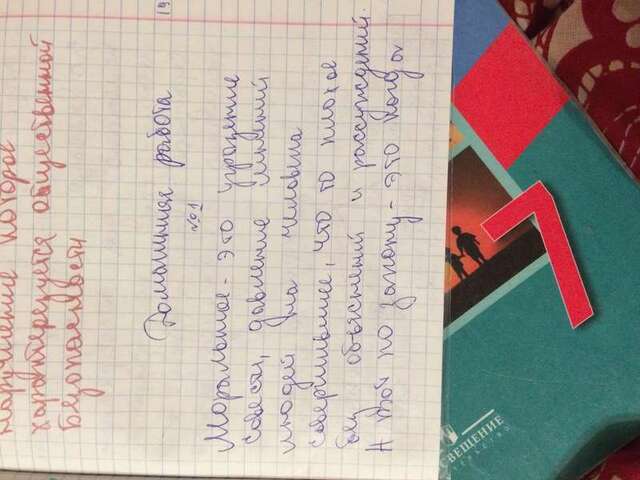 нарушение которое
характерезуется общественной
безопасности
Домашняя работа
19
№1
Моральное - это угрозение
совести, давление мнений
людей на человека
совершившее, что то плохое
без объяснений и рассуждений.
А вот по закону - это когда
СВЕЩЕНИЕ
7